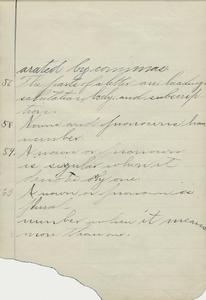 arated by commas
56 The parts of a letter are heading
salutation, body and subscrip
tion.
58 Nouns and pronouns have
number.
59. A noun or pronoun
is singular when it
denotes only one.
60 A noun or pronoun is
number when it means
more than one.